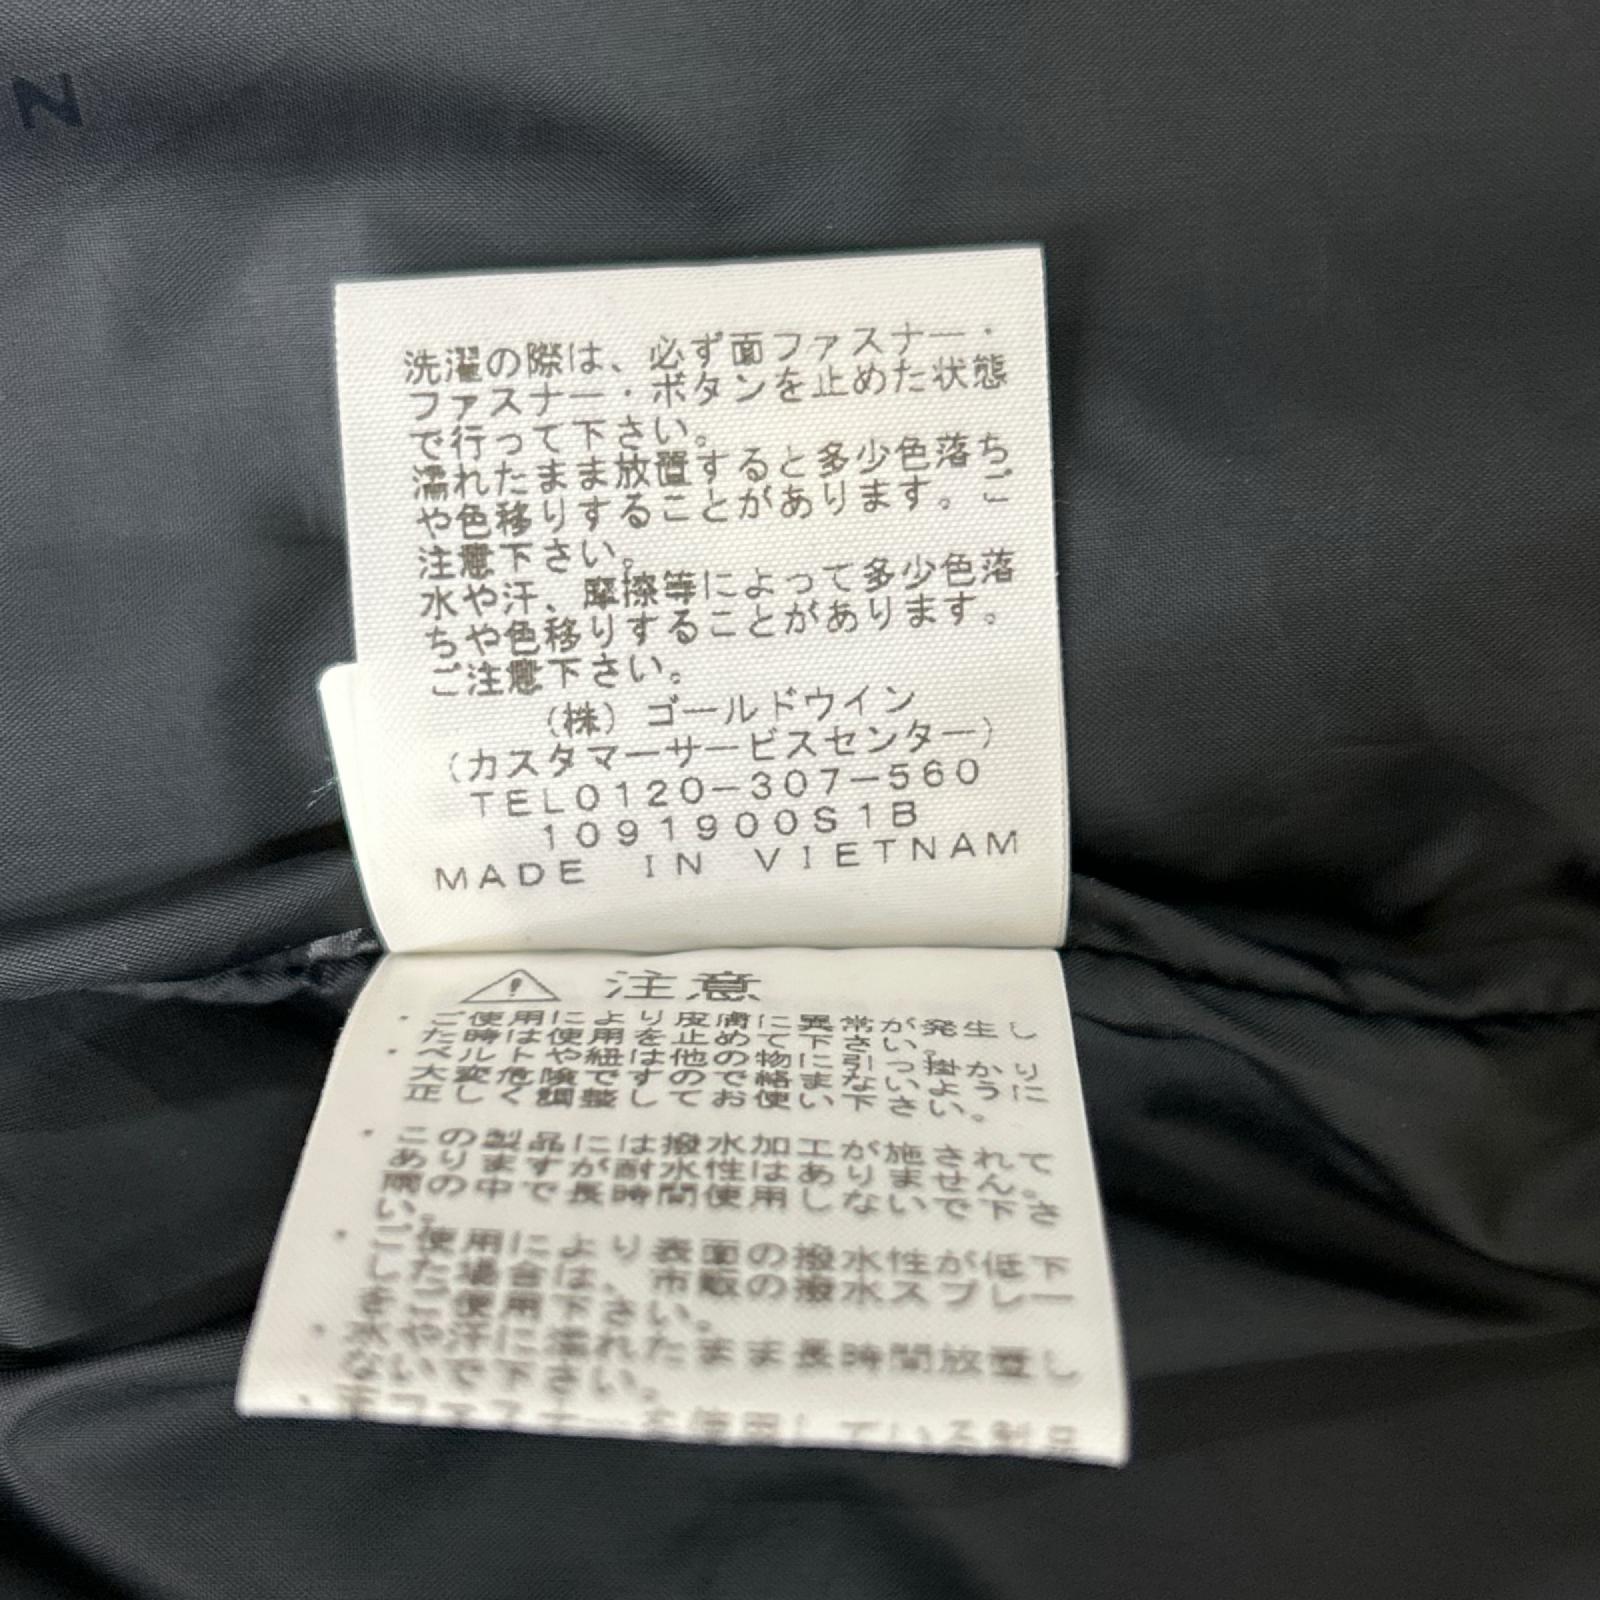 N
洗濯の際は、必ず面ファスナー・
ファスナー・ボタンを止めた状態
で行って下さい。
濡れたまま放置すると多少色落ち
や色移りすることがあります。ご
注意下さい。
水や汗、摩擦等によって多少色落
ちや色移りすることがあります。
ご注意下さい。
(株)ゴールドウイン
(カスタマーサービスセンター)
TEL0120-307-560
1091900S1B
MADE IN VIETNAM
注意
・ご使用により皮膚に異常が発生し
た時は使用を止めて下さい。
・ベルトや紐は他の物に引っ掛かり
大変危険ですので絡まないように
正しく調整してお使い下さい。
・この製品には撥水加工が施されて
ありますが耐水性はありません。
雨の中で長時間使用しないで下さ
い。
・ご使用により表面の撥水性が低下
した場合は、市販の撥水スプレー
をご使用下さい。
・水や汗に濡れたまま長時間放置し
ないで下さい。
ファスナーを使用している製品